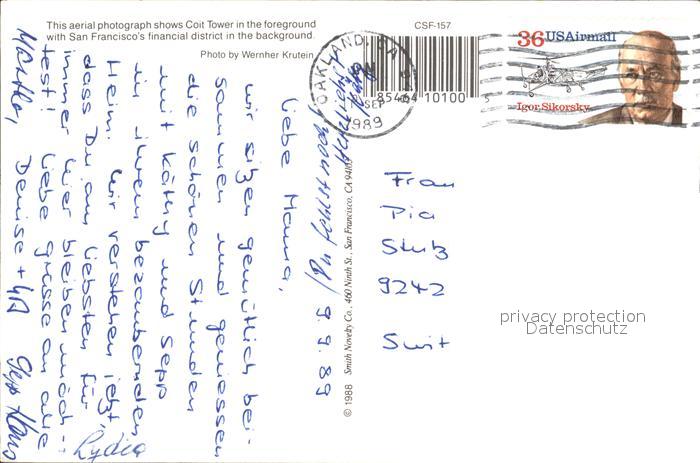 This aerial photograph shows Coit Tower in the foreground
with San Francisco's financial district in the background.
Photo by Wernher Krutein
CSF-157
85464 10100 5
OAKLAND, CA
SEP
1989
36 USAirmail
Igor Sikorsky
© 1988 Smith Novelty Co., 460 Ninth St., San Francisco, CA 94103
9.9.89
Liebe Mama,
wir sitzen gemütlich bei-
sammen und geniessen
die schönen Stunden
mit Käthy und Sepp
in ihrem bezaubernden
Heim. Wir verstehen jetzt,
dass Du am liebsten für
immer hier bleiben möch-
test! Liebe Grüsse an alle
Martha, Denise + 
Lydia
Sepp Hans
(Du fehlst
Frau
Pia
Stutz
9242
privacy protection
Datenschutz